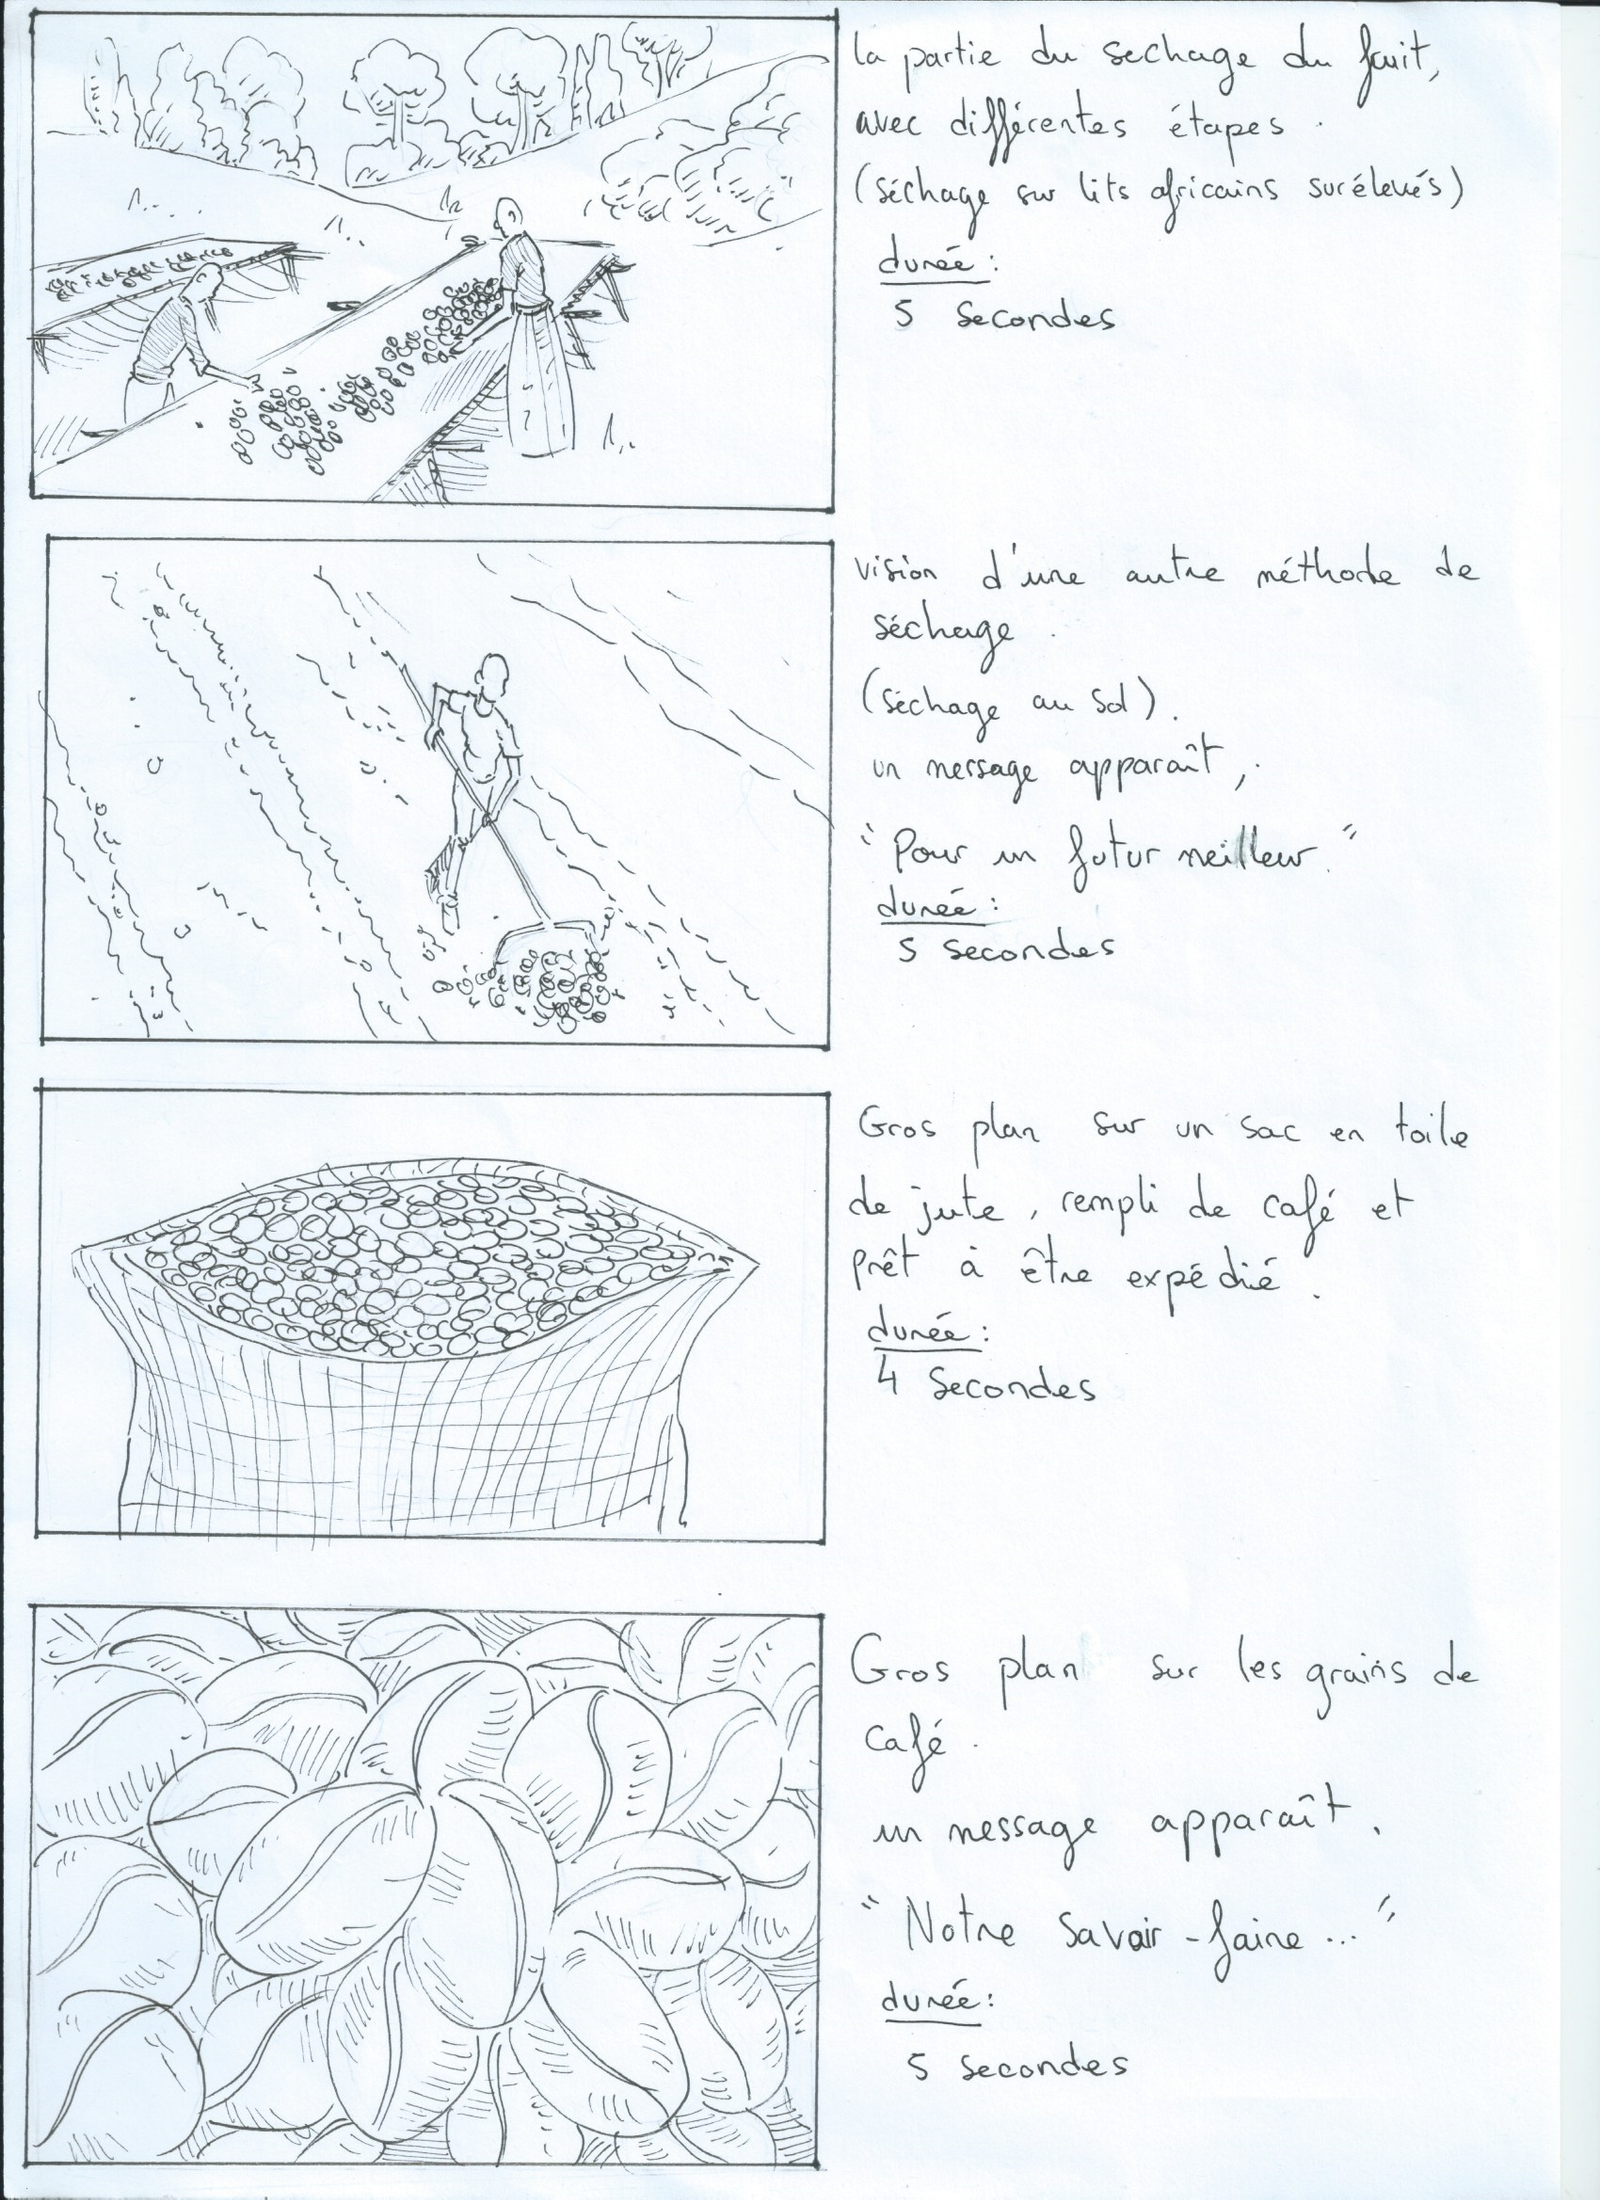 la partie du sechage du fruit,
avec différentes étapes.
(séchage sur lits africains surélevés)
durée :
5 secondes
vision d'une autre méthode de
séchage.
(séchage au sol).
un message apparaît,
"Pour un futur meilleur."
durée :
5 secondes
Gros plan sur un sac en toile
de jute, rempli de café et
prêt à être expédié.
durée :
4 secondes
Gros plan sur les grains de
café.
un message apparaît.
"Notre savoir-faire..."
durée :
5 secondes